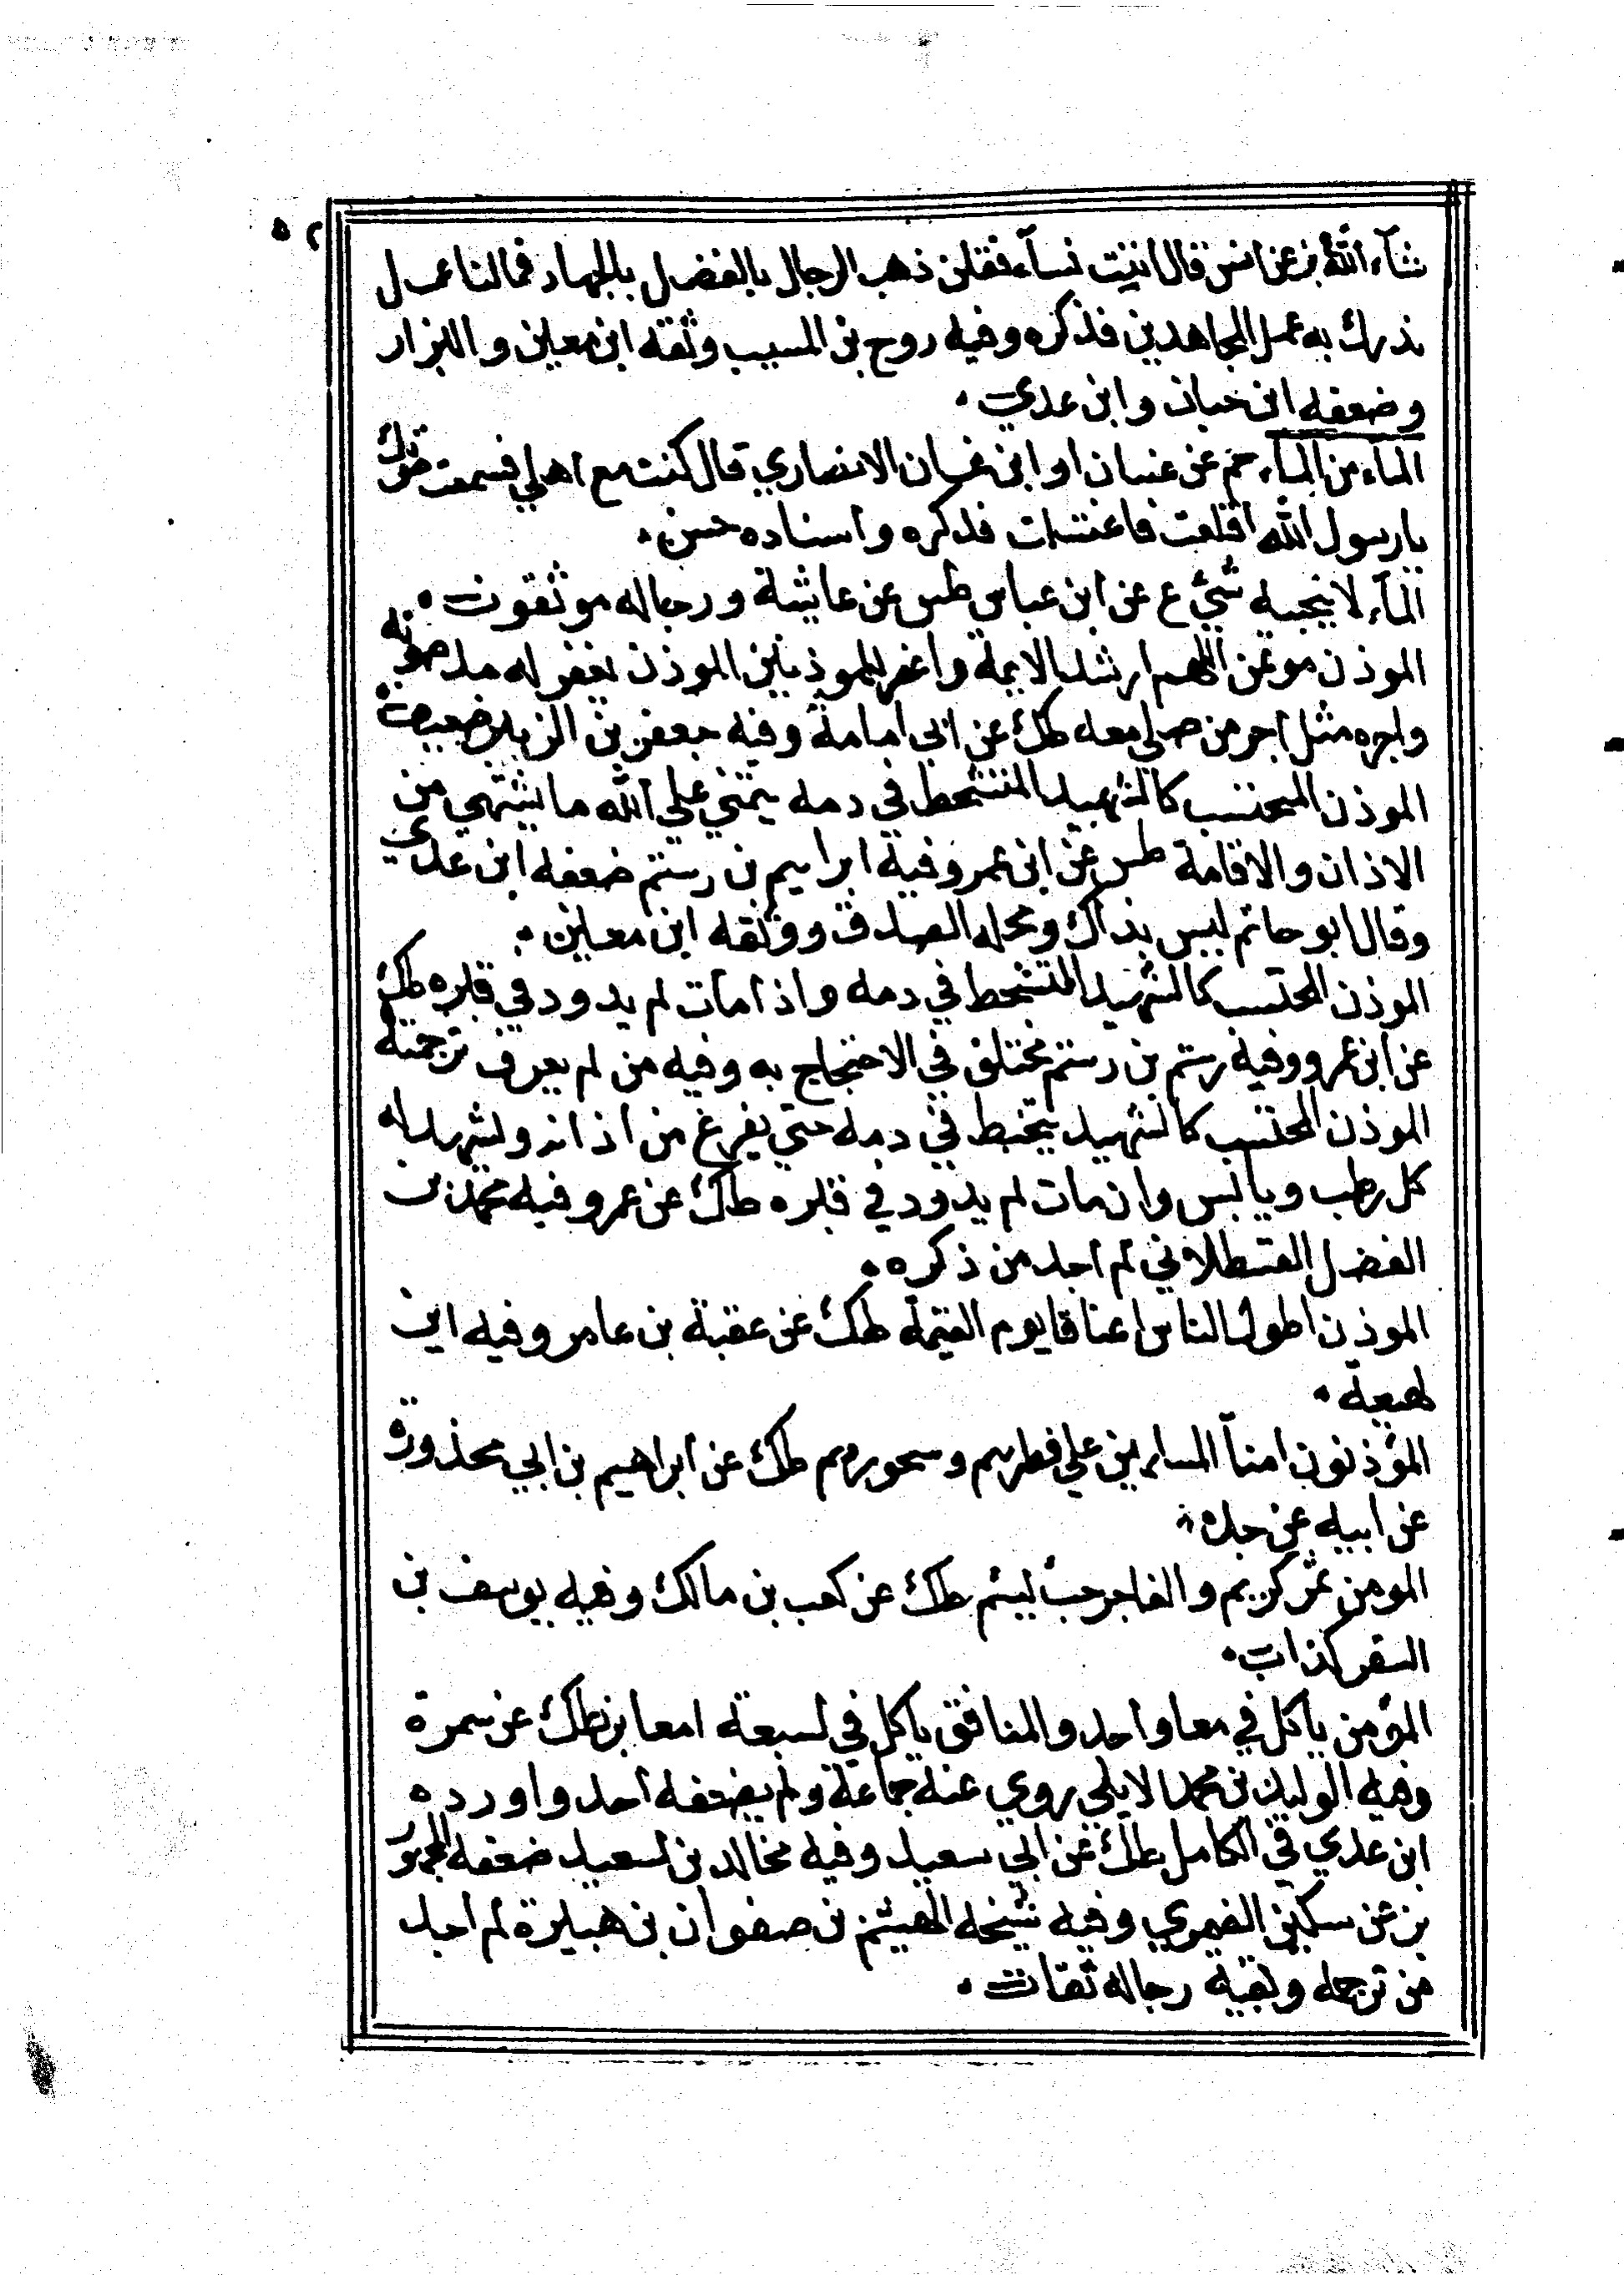 ٥٢
شآء الله بز عن انس قال اتيت نسآء فقلن ذهب الرجال بالفضل بالجهاد فما لنا عمل
ندرك به عمل المجاهدين فذكره وفيه روح بن المسيب وثقه ابن معين والبزار
وضعفه ابن حبان وابن عدي
المآء من المآء حم عن عتبان او ابن عتبان الانصاري قال كنت مع اهلي فسمعت صوتك
يا رسول الله اقلعت فاغتسلت فذكره واسناده حسن
المآء لا ينجسه شئ ع عن ابن عباس طس عن عايشة ورجاله موثقون
الموذن موتمن اللهم ارشد الايمة واغفر للموذنين الموذن يغفر له مد صوته
واجره مثل اجر من صلي معه طك عن ابي امامة وفيه جعفر بن الزبير ضعيف
الموذن المحتسب كالشهيد المتشحط في دمه يتمني علي الله ما يشتهي من
الاذان والاقامة طس عن ابن عمر وفيه ابراهيم بن رستم ضعفه ابن عدي
وقال ابو حاتم ليس بذاك ومحله الصدق ووثقه ابن معين
الموذن المحتسب كالشهيد المتشحط في دمه واذا مات لم يدود في قبره طك
عن ابن عمرو وفيه رستم بن رستم مختلف في الاحتجاج به وفيه من لم يعرف ترجمته
الموذن المحتسب كالشهيد يتخبط في دمه حتي يفرغ من اذانه ولشهد له
كل رطب ويابس وان مات لم يدود في قبره طك عن عمرو وفيه محمد بن
الفضل القسطلاني لم اجد من ذكره
الموذن اطول الناس اعناقا يوم القيمة طك عن عقبة بن عامر وفيه ابن
لهيعة
المؤذنون امنآ المسلمين علي فطرهم وسحورهم طك عن ابراهيم بن ابي محذورة
عن ابيه عن جده
المومن غر كريم والفاجر خب ليئم طك عن كعب بن مالك وفيه يوسف بن
السفر كذاب
المؤمن ياكل في معا واحد والمنافق ياكل في سبعة امعا بز طك عن سمرة
وفيه الوليد بن محمد الايلي روي عنه جماعة ولم يضعفه احد واورده
ابن عدي في الكامل طك عن ابي سعيد وفيه مخالد بن سعيد ضعفه الجمهور
بز عن سكين الضمري وفيه شيخه الهيثم بن صفوان بن هبيرة لم اجد
من ترجمه وبقية رجاله ثقات